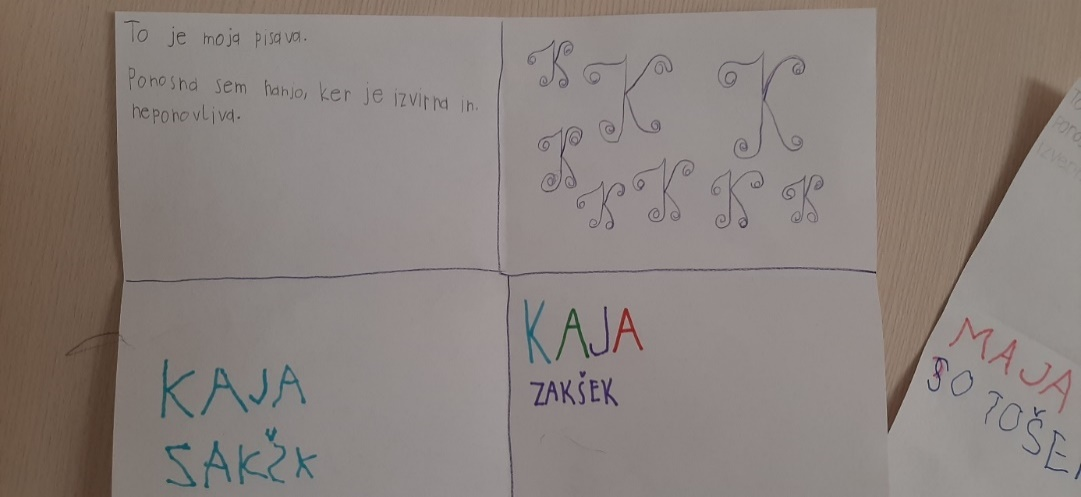 To je moja pisava.
Ponosna sem nanjo, ker je izvirna in
neponovljiva.
K K K
K K K K K
KAJA
ZAKŠEK
KAJA
SAKŽK
MAJA